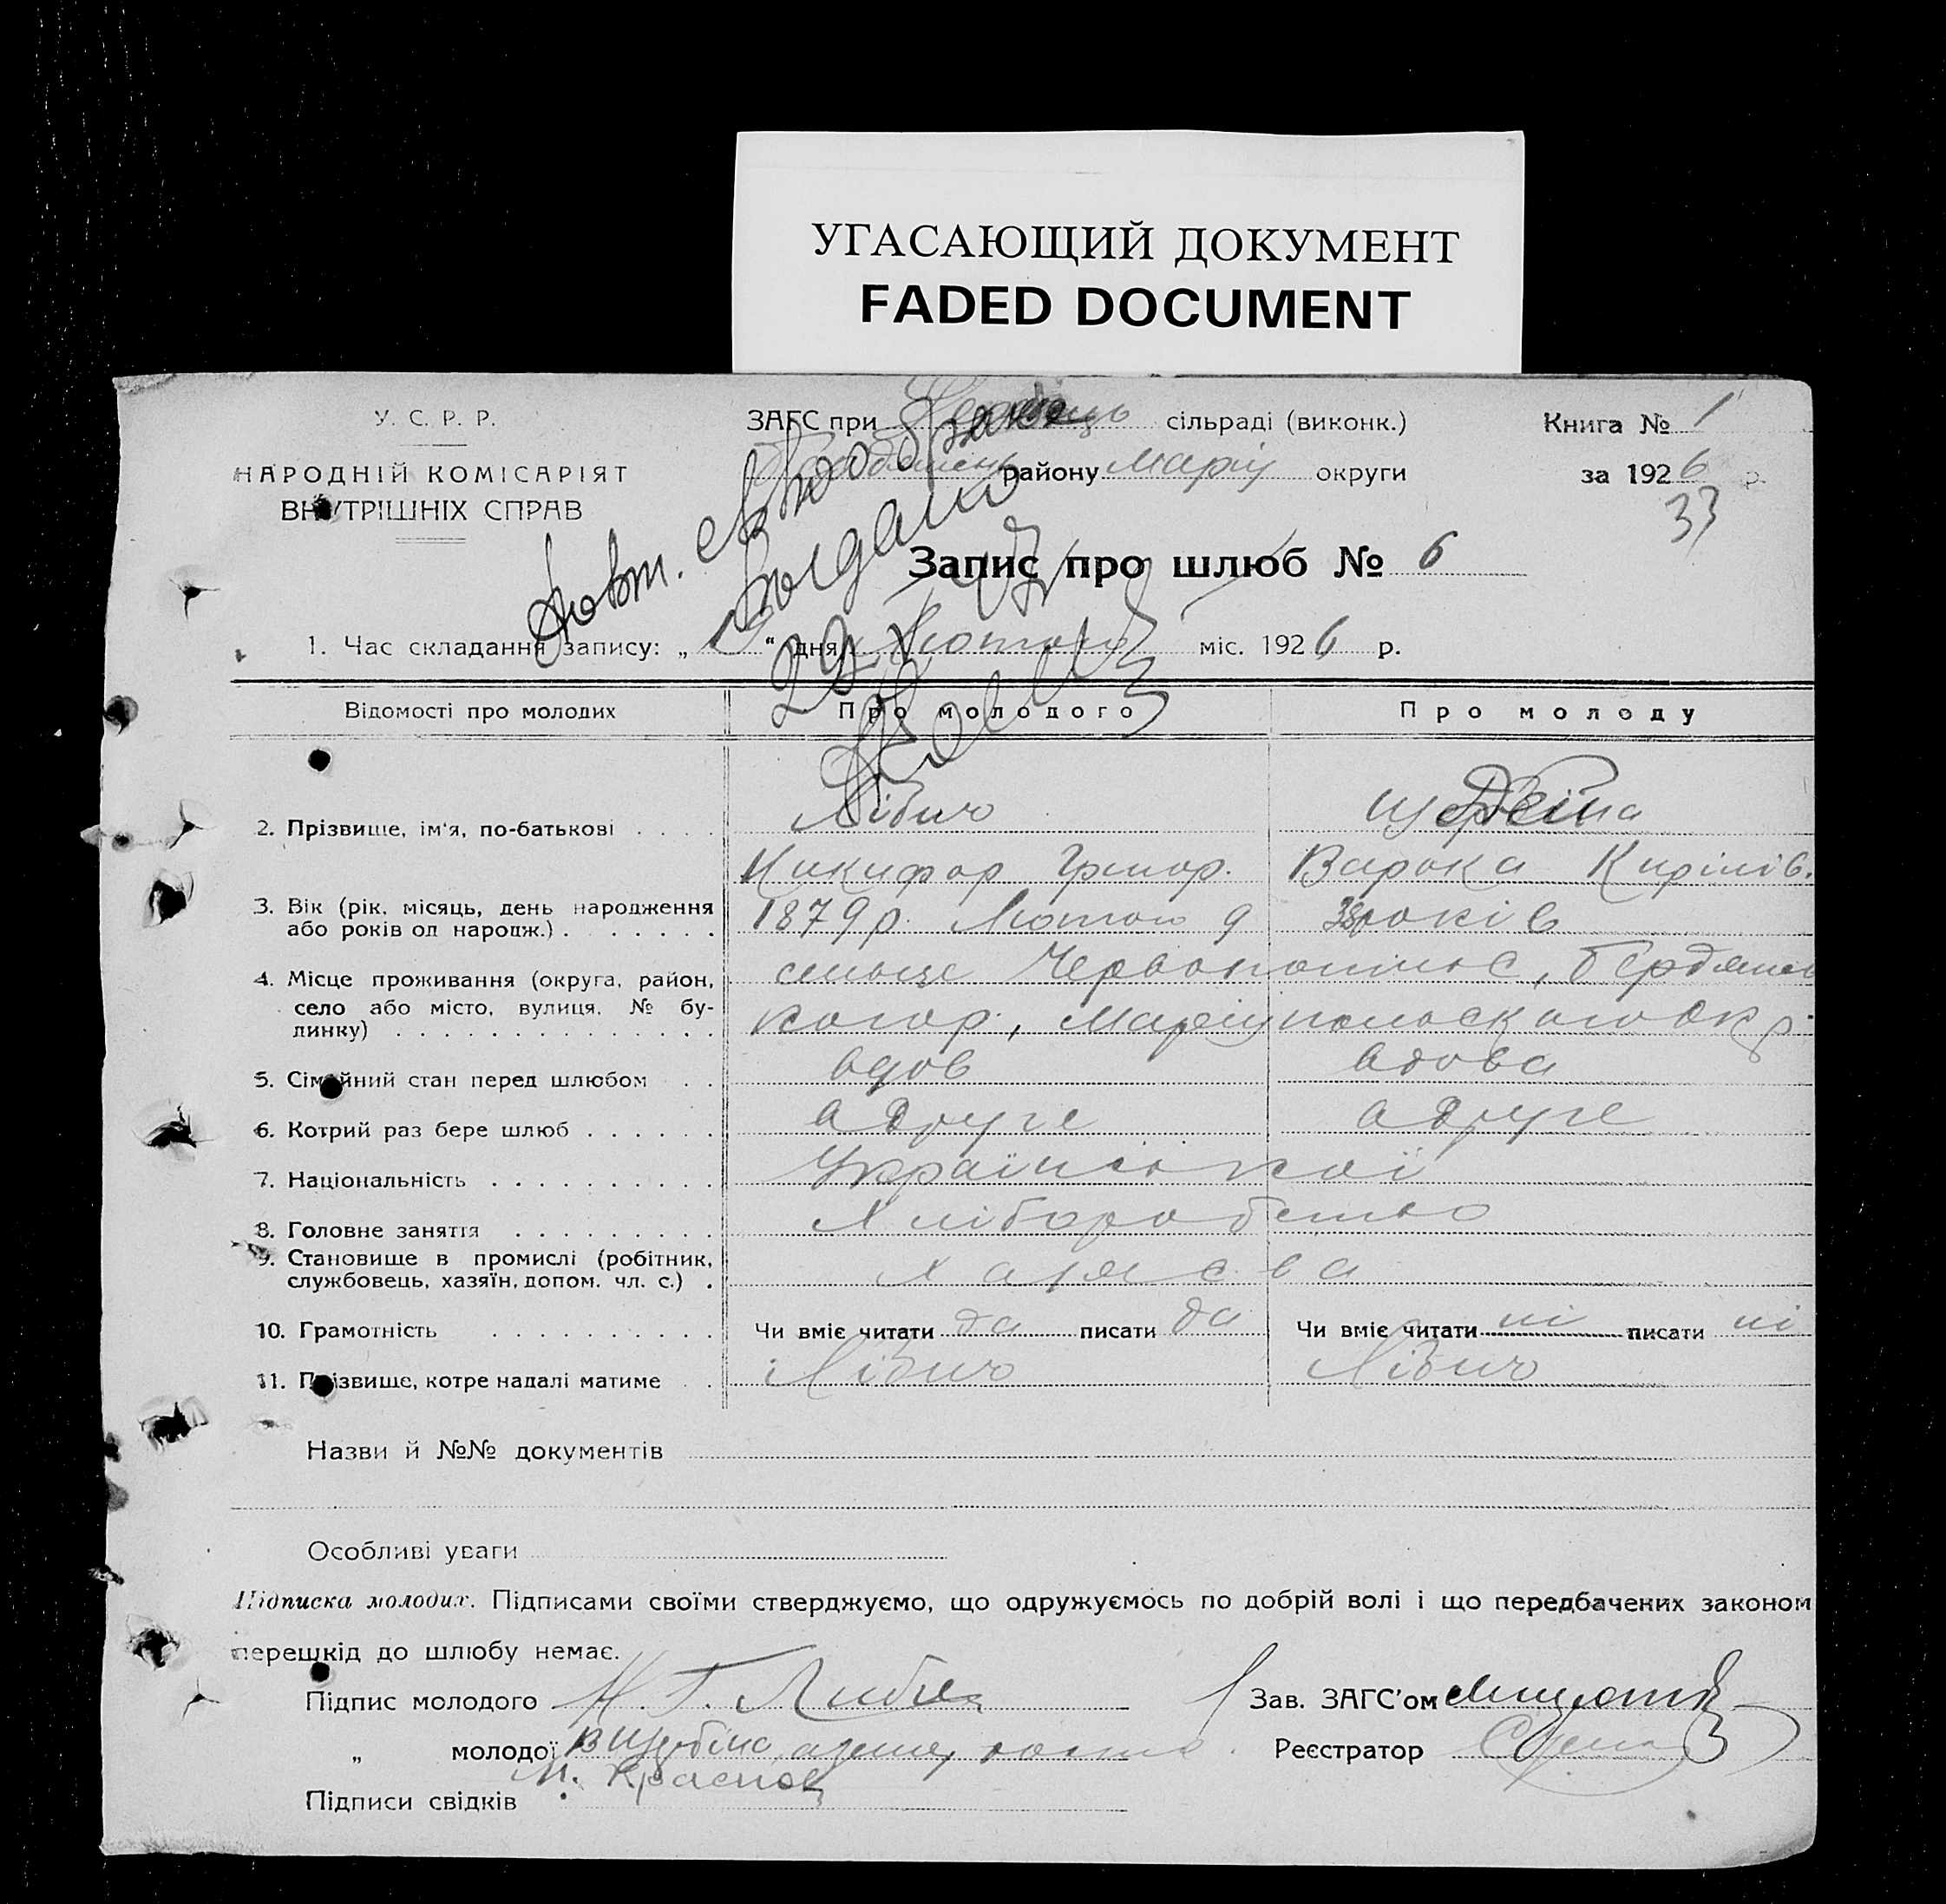 УГАСАЮЩИЙ ДОКУМЕНТ
FADED DOCUMENT
У. С. Р. Р.
НАРОДНІЙ КОМІСАРІЯТ
ВНУТРІШНІХ СПРАВ
ЗАГС при сільраді (виконк.)
району Маріу округи
Книга № 1
за 1926 р.
33
Повт. св во о браке
29
Запис про шлюб № 6
1. Час складання запису: „ “ дня Лютого міс. 1926 р.
Відомості про молодих Про молодого Про молоду
2. Прізвище, ім'я, по-батькові . . . . Лібич
Никифор Григор. Варока Кирілів.
3. Вік (рік, місяць, день народження 1879 р. Лютого 9 38 років
або років од народж.) . . . . . . .
4. Місце проживання (округа, район, селище , Бердянсь
село або місто, вулиця, № бу- кого р., Маріупольского окр.
динку) . . . . . . . . . . . . . .
5. Сімейний стан перед шлюбом . . вдов вдова
6. Котрий раз бере шлюб . . . . . . вдруге вдруге
7. Національність . . . . . . . . . . Української
8. Головне заняття . . . . . . . . . Хліборобство
9. Становище в промислі (робітник,
службовець, хазяїн, допом. чл. с.) .
10. Грамотність . . . . . . . . . . Чи вміє читати да писати да Чи вміє читати ні писати ні
11. Прізвище, котре надалі матиме . . Лібич Лібич
Назви й №№ документів
Особливі уваги
Підписка молодих. Підписами своїми стверджуємо, що одружуємось по добрій волі і що передбачених законом
перешкід до шлюбу немає.
Підпис молодого Н. Г. Зав. ЗАГС'ом
„ молодої Реєстратор
Підписи свідків